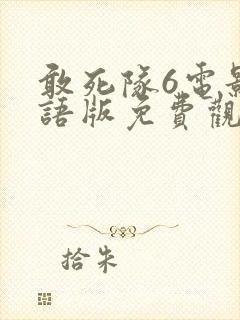 敢死隊6電影
語版免費觀
拾朱